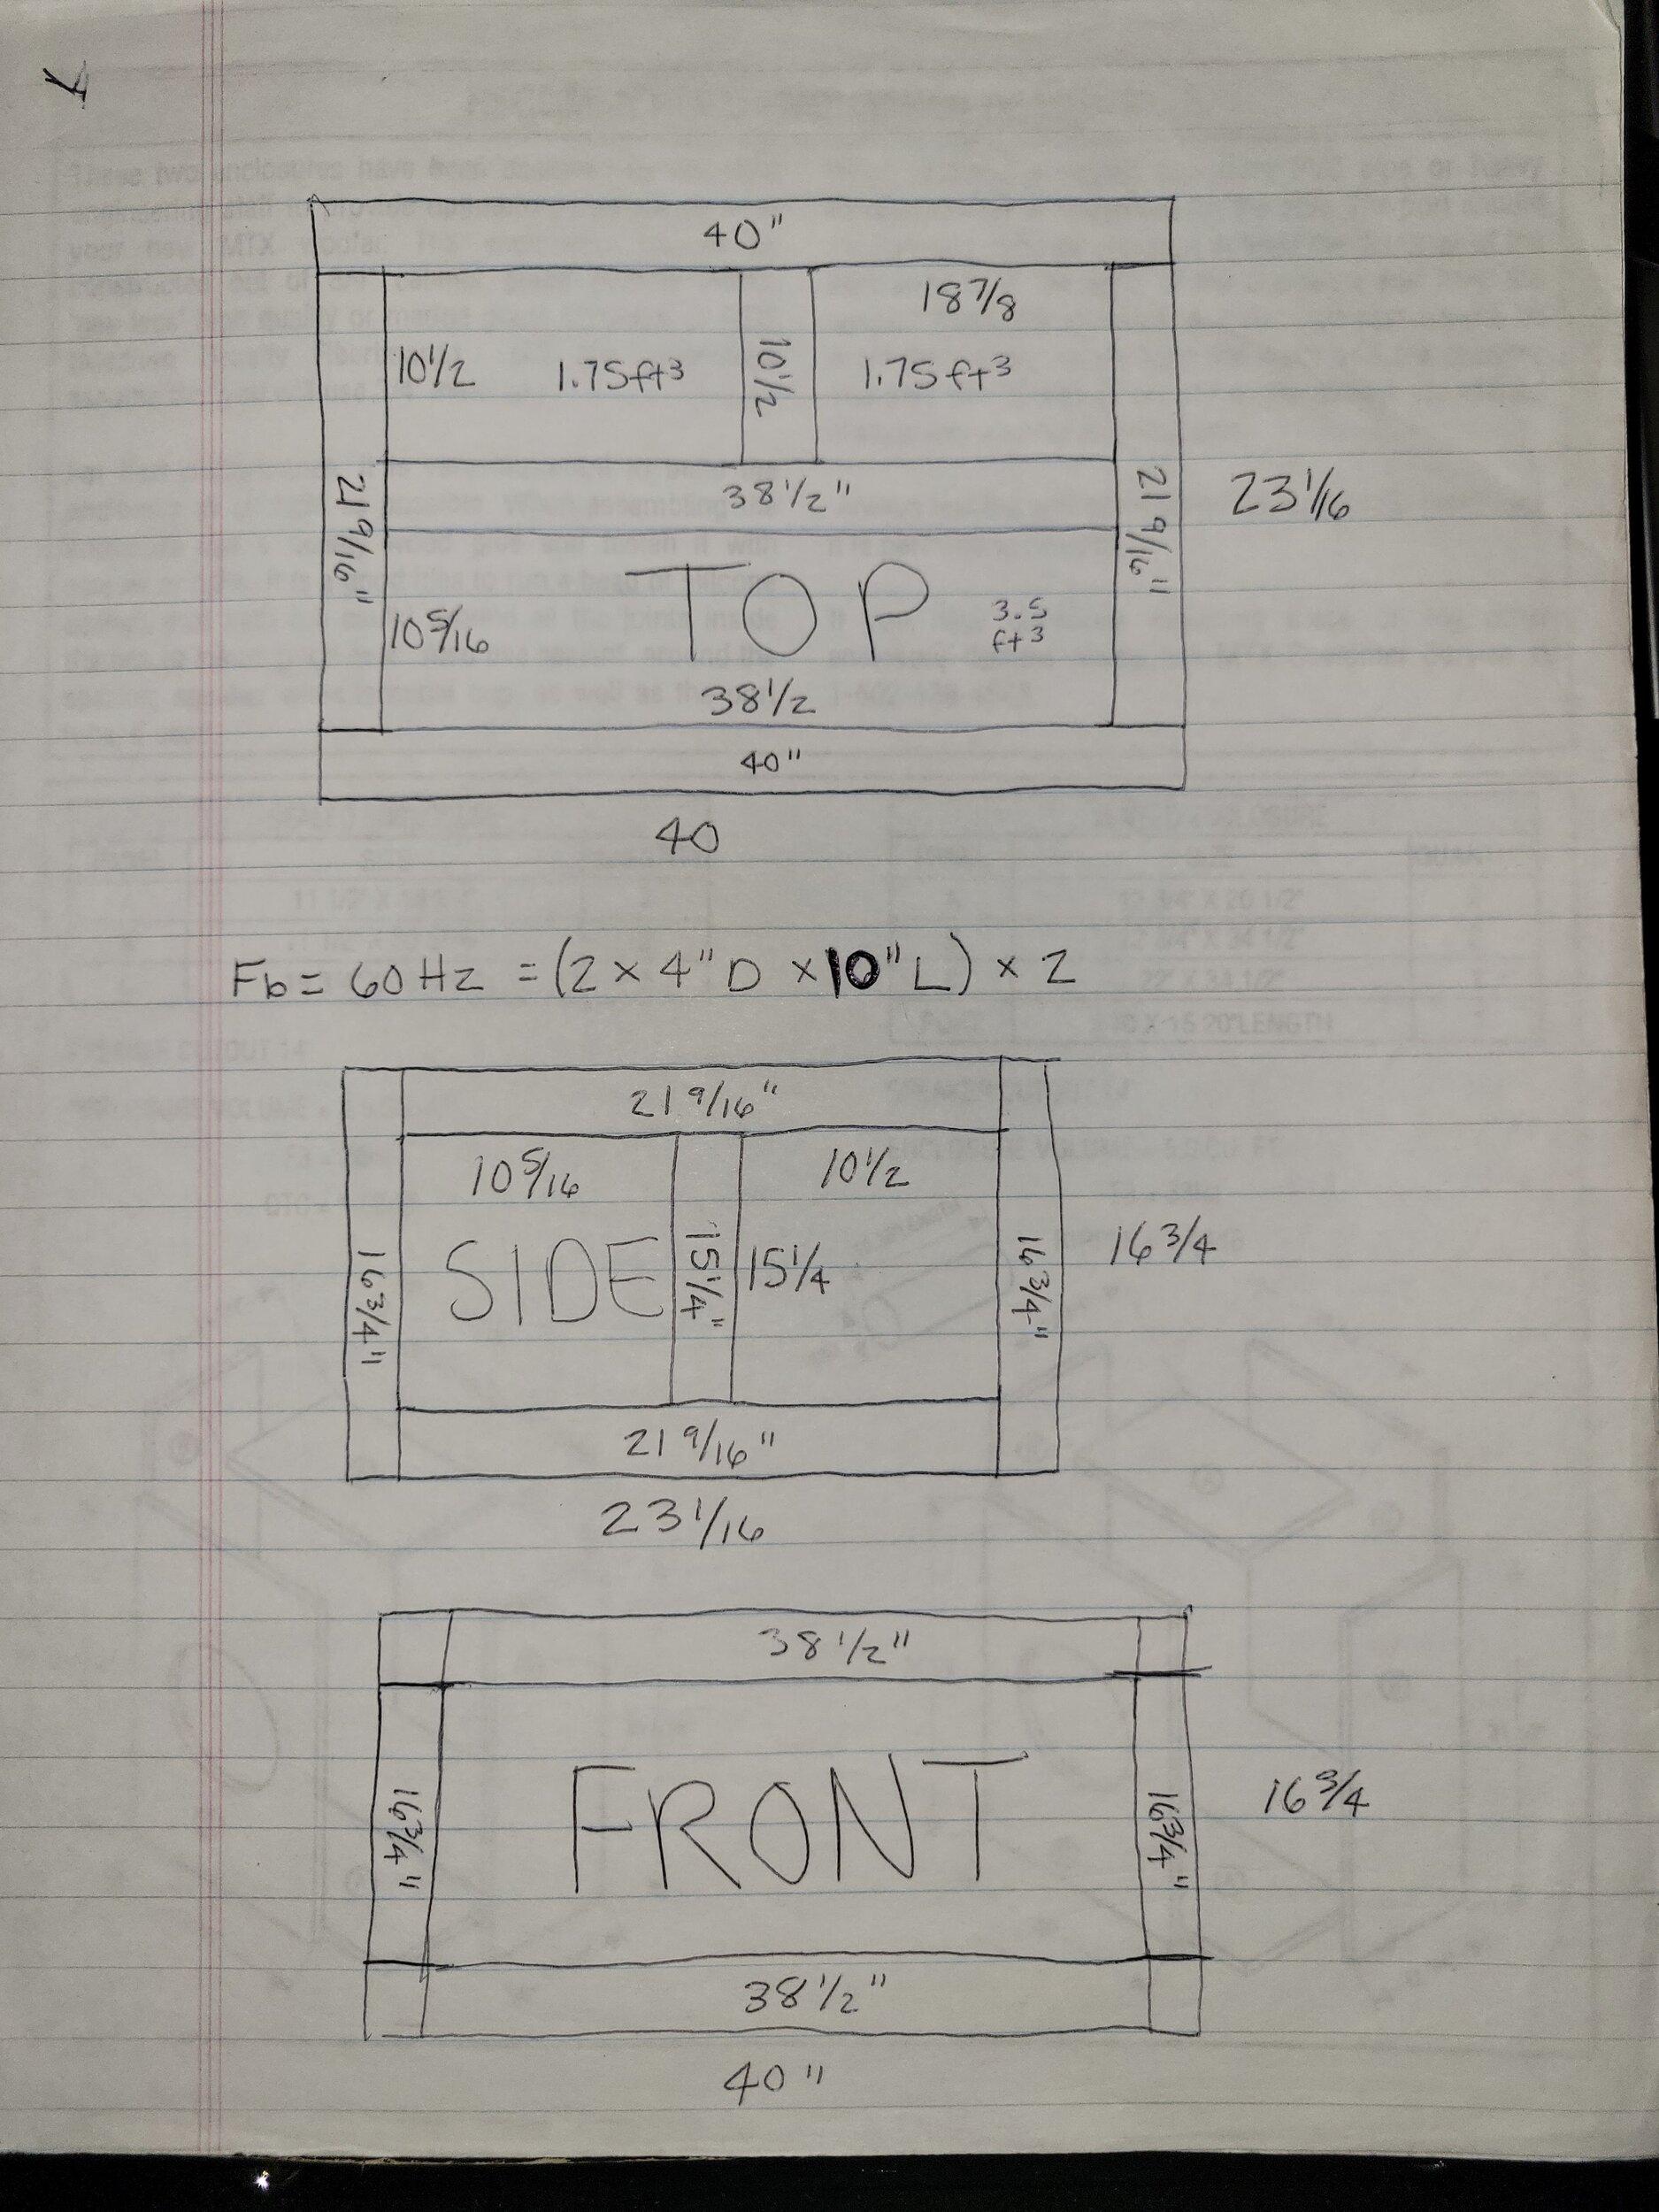 40"
18 7/8
10 1/2 1.75ft³ 10 1/2 1.75ft³
21 9/16" 38 1/2" 21 9/16" 23 1/16
TOP 3.5 ft3
10 5/16
38 1/2
40"
40
Fb = 60 Hz = (2 × 4" D × 10" L) × 2
21 9/16"
10 5/16 10 1/2
16 3/4" SIDE 15 1/4" 15 1/4 16 3/4" 16 3/4
21 9/16"
23 1/16
38 1/2"
16 3/4" FRONT 16 3/4" 16 3/4
38 1/2"
40"